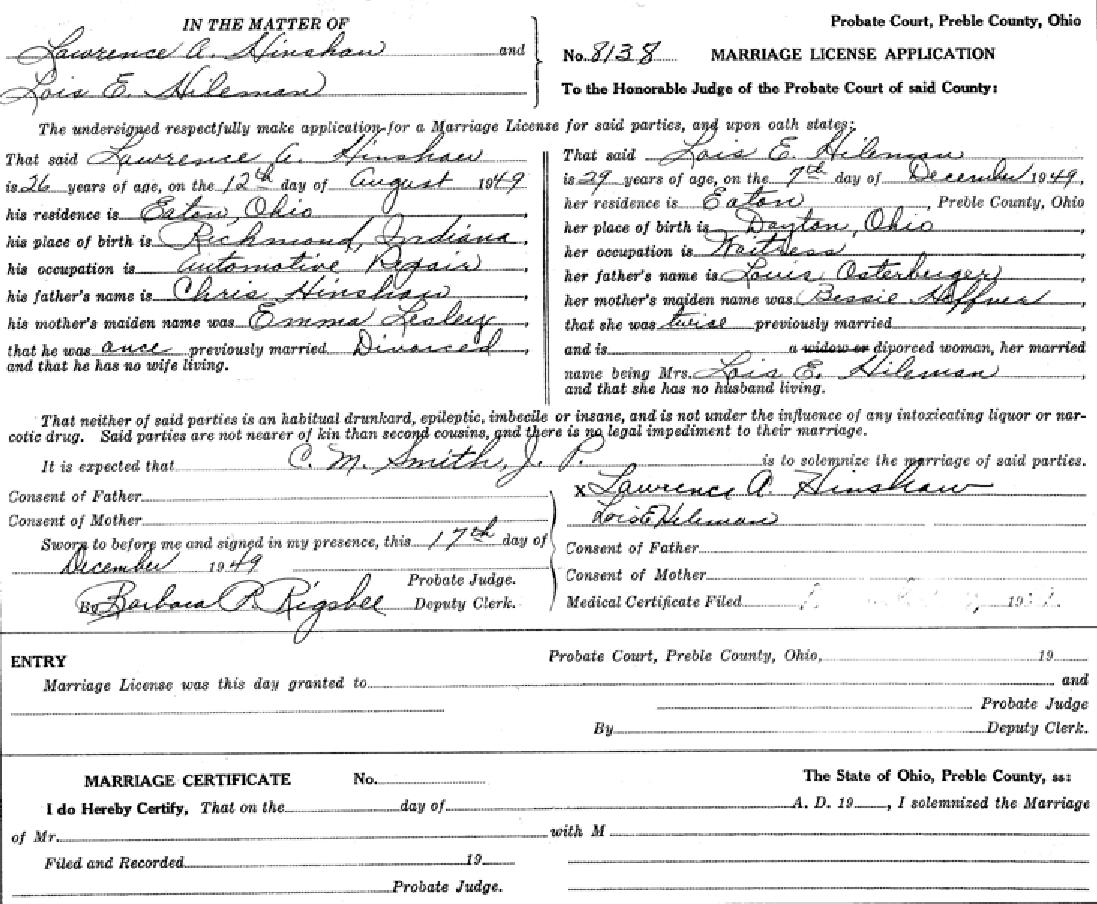 IN THE MATTER OF
Lawrence A. Hinshaw and
Lois E. Hileman
Probate Court, Preble County, Ohio
No. 8138 MARRIAGE LICENSE APPLICATION
To the Honorable Judge of the Probate Court of said County:
The undersigned respectfully make application for a Marriage License for said parties, and upon oath states:
That said Lawrence A. Hinshaw
is 26 years of age, on the 12th day of August 1949
his residence is Eaton, Ohio,
his place of birth is Richmond, Indiana,
his occupation is Automotive Repair
his father's name is Chris Hinshaw,
his mother's maiden name was Emma Lesley,
that he was once previously married Divorced,
and that he has no wife living.
That said Lois E. Hileman
is 29 years of age, on the 7th day of December 1949,
her residence is Eaton, Preble County, Ohio
her place of birth is Dayton, Ohio,
her occupation is Waitress,
her father's name is Louis Osterburger,
her mother's maiden name was Bessie Heffner
that she was twise previously married,
and is a widow or divorced woman, her married
name being Mrs. Lois E. Hileman
and that she has no husband living.
That neither of said parties is an habitual drunkard, epileptic, imbecile or insane, and is not under the influence of any intoxicating liquor or nar-
cotic drug. Said parties are not nearer of kin than second cousins, and there is no legal impediment to their marriage.
It is expected that C. M. Smith, J. P. is to solemnize the marriage of said parties.
Consent of Father
Consent of Mother
Sworn to before me and signed in my presence, this 17th day of
December 1949
Probate Judge.
By Barbara P. Rigsbee Deputy Clerk.
X Lawrence A. Hinshaw
Lois E Hileman
Consent of Father
Consent of Mother
Medical Certificate Filed 19
ENTRY
Probate Court, Preble County, Ohio, 19
Marriage License was this day granted to and
Probate Judge
By Deputy Clerk.
MARRIAGE CERTIFICATE No.
The State of Ohio, Preble County, ss:
I do Hereby Certify, That on the day of A. D. 19, I solemnized the Marriage
of Mr. with M
Filed and Recorded 19
Probate Judge.